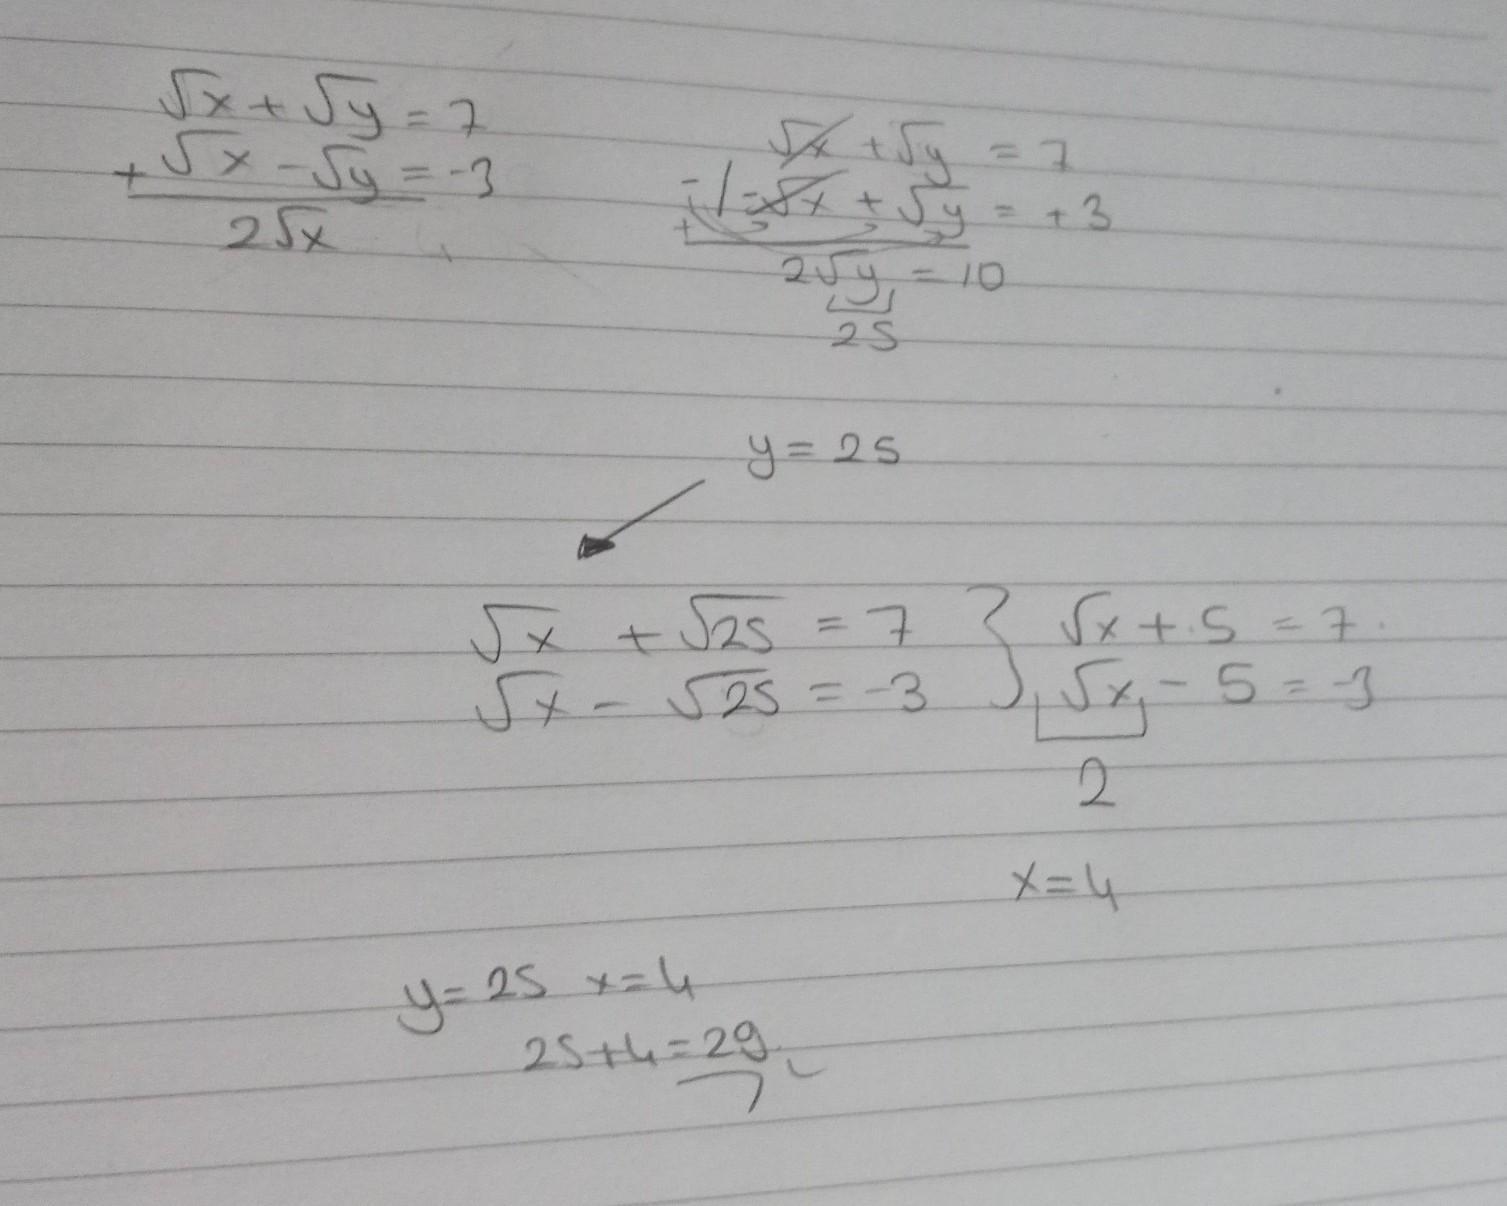 √x + √y = 7
+ √x - √y = -3
2√x
√x + √y = 7
-1 -√x + √y = +3
+
2√y = 10
25
y = 25
√x + √25 = 7 } √x + 5 = 7
√x - √25 = -3 √x - 5 = -3
2
x = 4
y = 25 x = 4
25 + 4 = 29